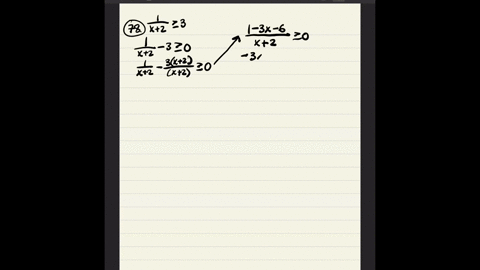 78 1/(x+2) ≥ 3
1/(x+2) - 3 ≥ 0
1/(x+2) - 3(x+2)/(x+2) ≥ 0
(1-3x-6)/(x+2) ≥ 0
-3